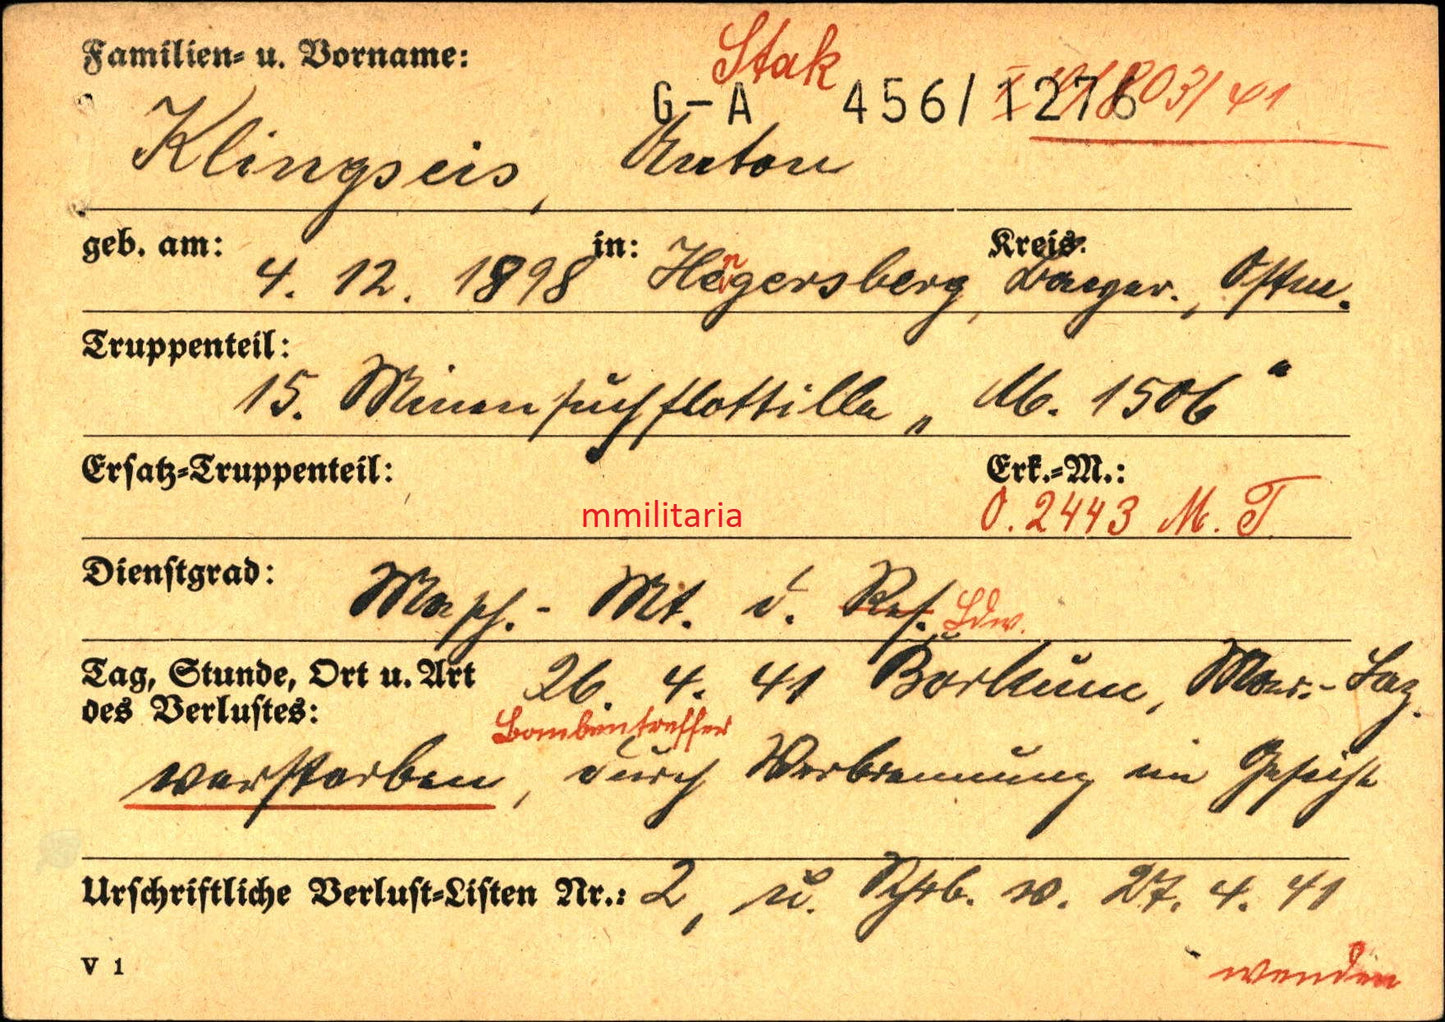 Familien= u. Vorname:
Stak
G-A 456/1276
803/41
Klingseis, Anton
geb. am: 4. 12. 1898 in: Hengersberg, Kreis: Ostm.
Truppenteil:
15. Minensuchflottille „M. 1506"
Ersatz=Truppenteil: Erk.=M.:
mmilitaria O. 2443 M. T
Dienstgrad:
Masch.- Mt. d. Res. Ldw.
Tag, Stunde, Ort u. Art 26. 4. 41 Borkum, Mar.- Laz.
des Verlustes: Bombentreffer
verstorben, durch Verbrennung im Gesicht
Urschriftliche Verlust=Listen Nr.: 2, u. Schrb. v. 27. 4. 41
V 1
wenden